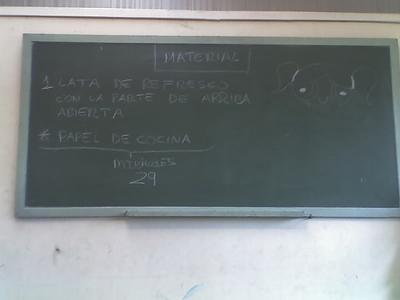 MATERIAL
1 LATA DE REFRESCO
CON LA PARTE DE ARRIBA
ABIERTA
* PAPEL DE COCINA
MIÉRCOLES
29